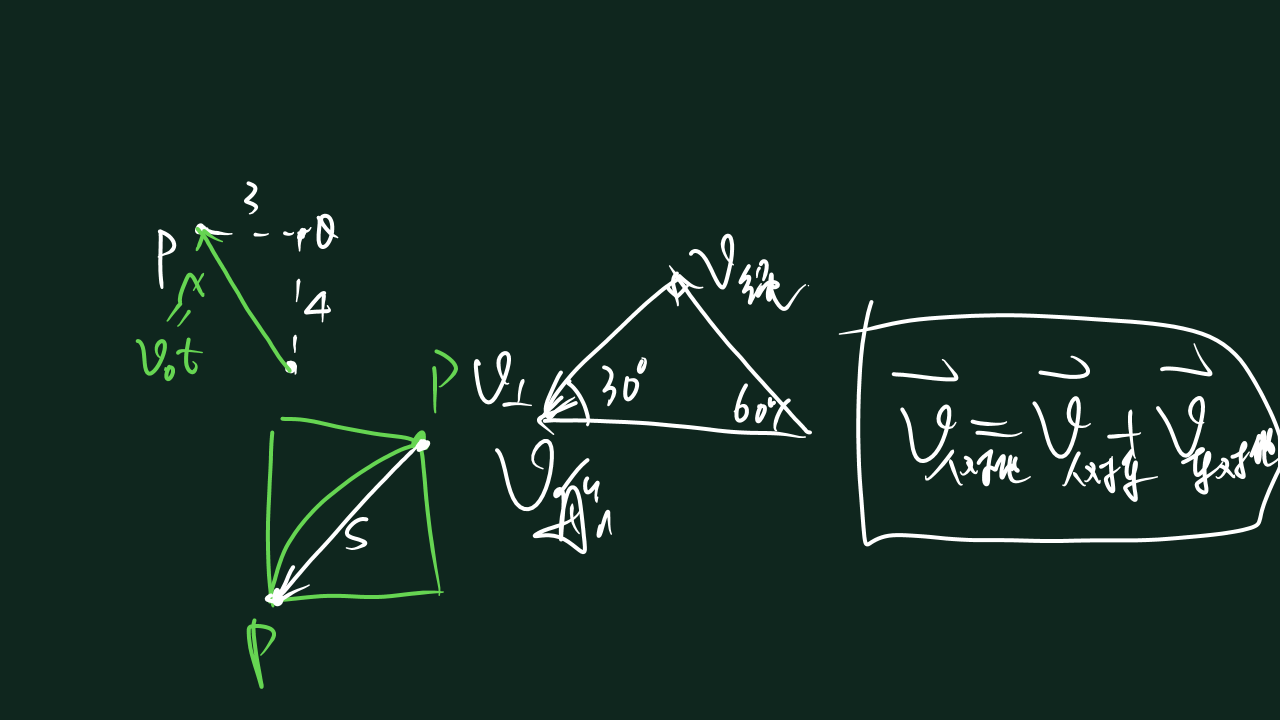 3
P
Q
4
x
=
v₀t
P
S
P
v绳
v⊥
30°
60°
v
v⃗人对地 = v⃗人对车 + v⃗车对地